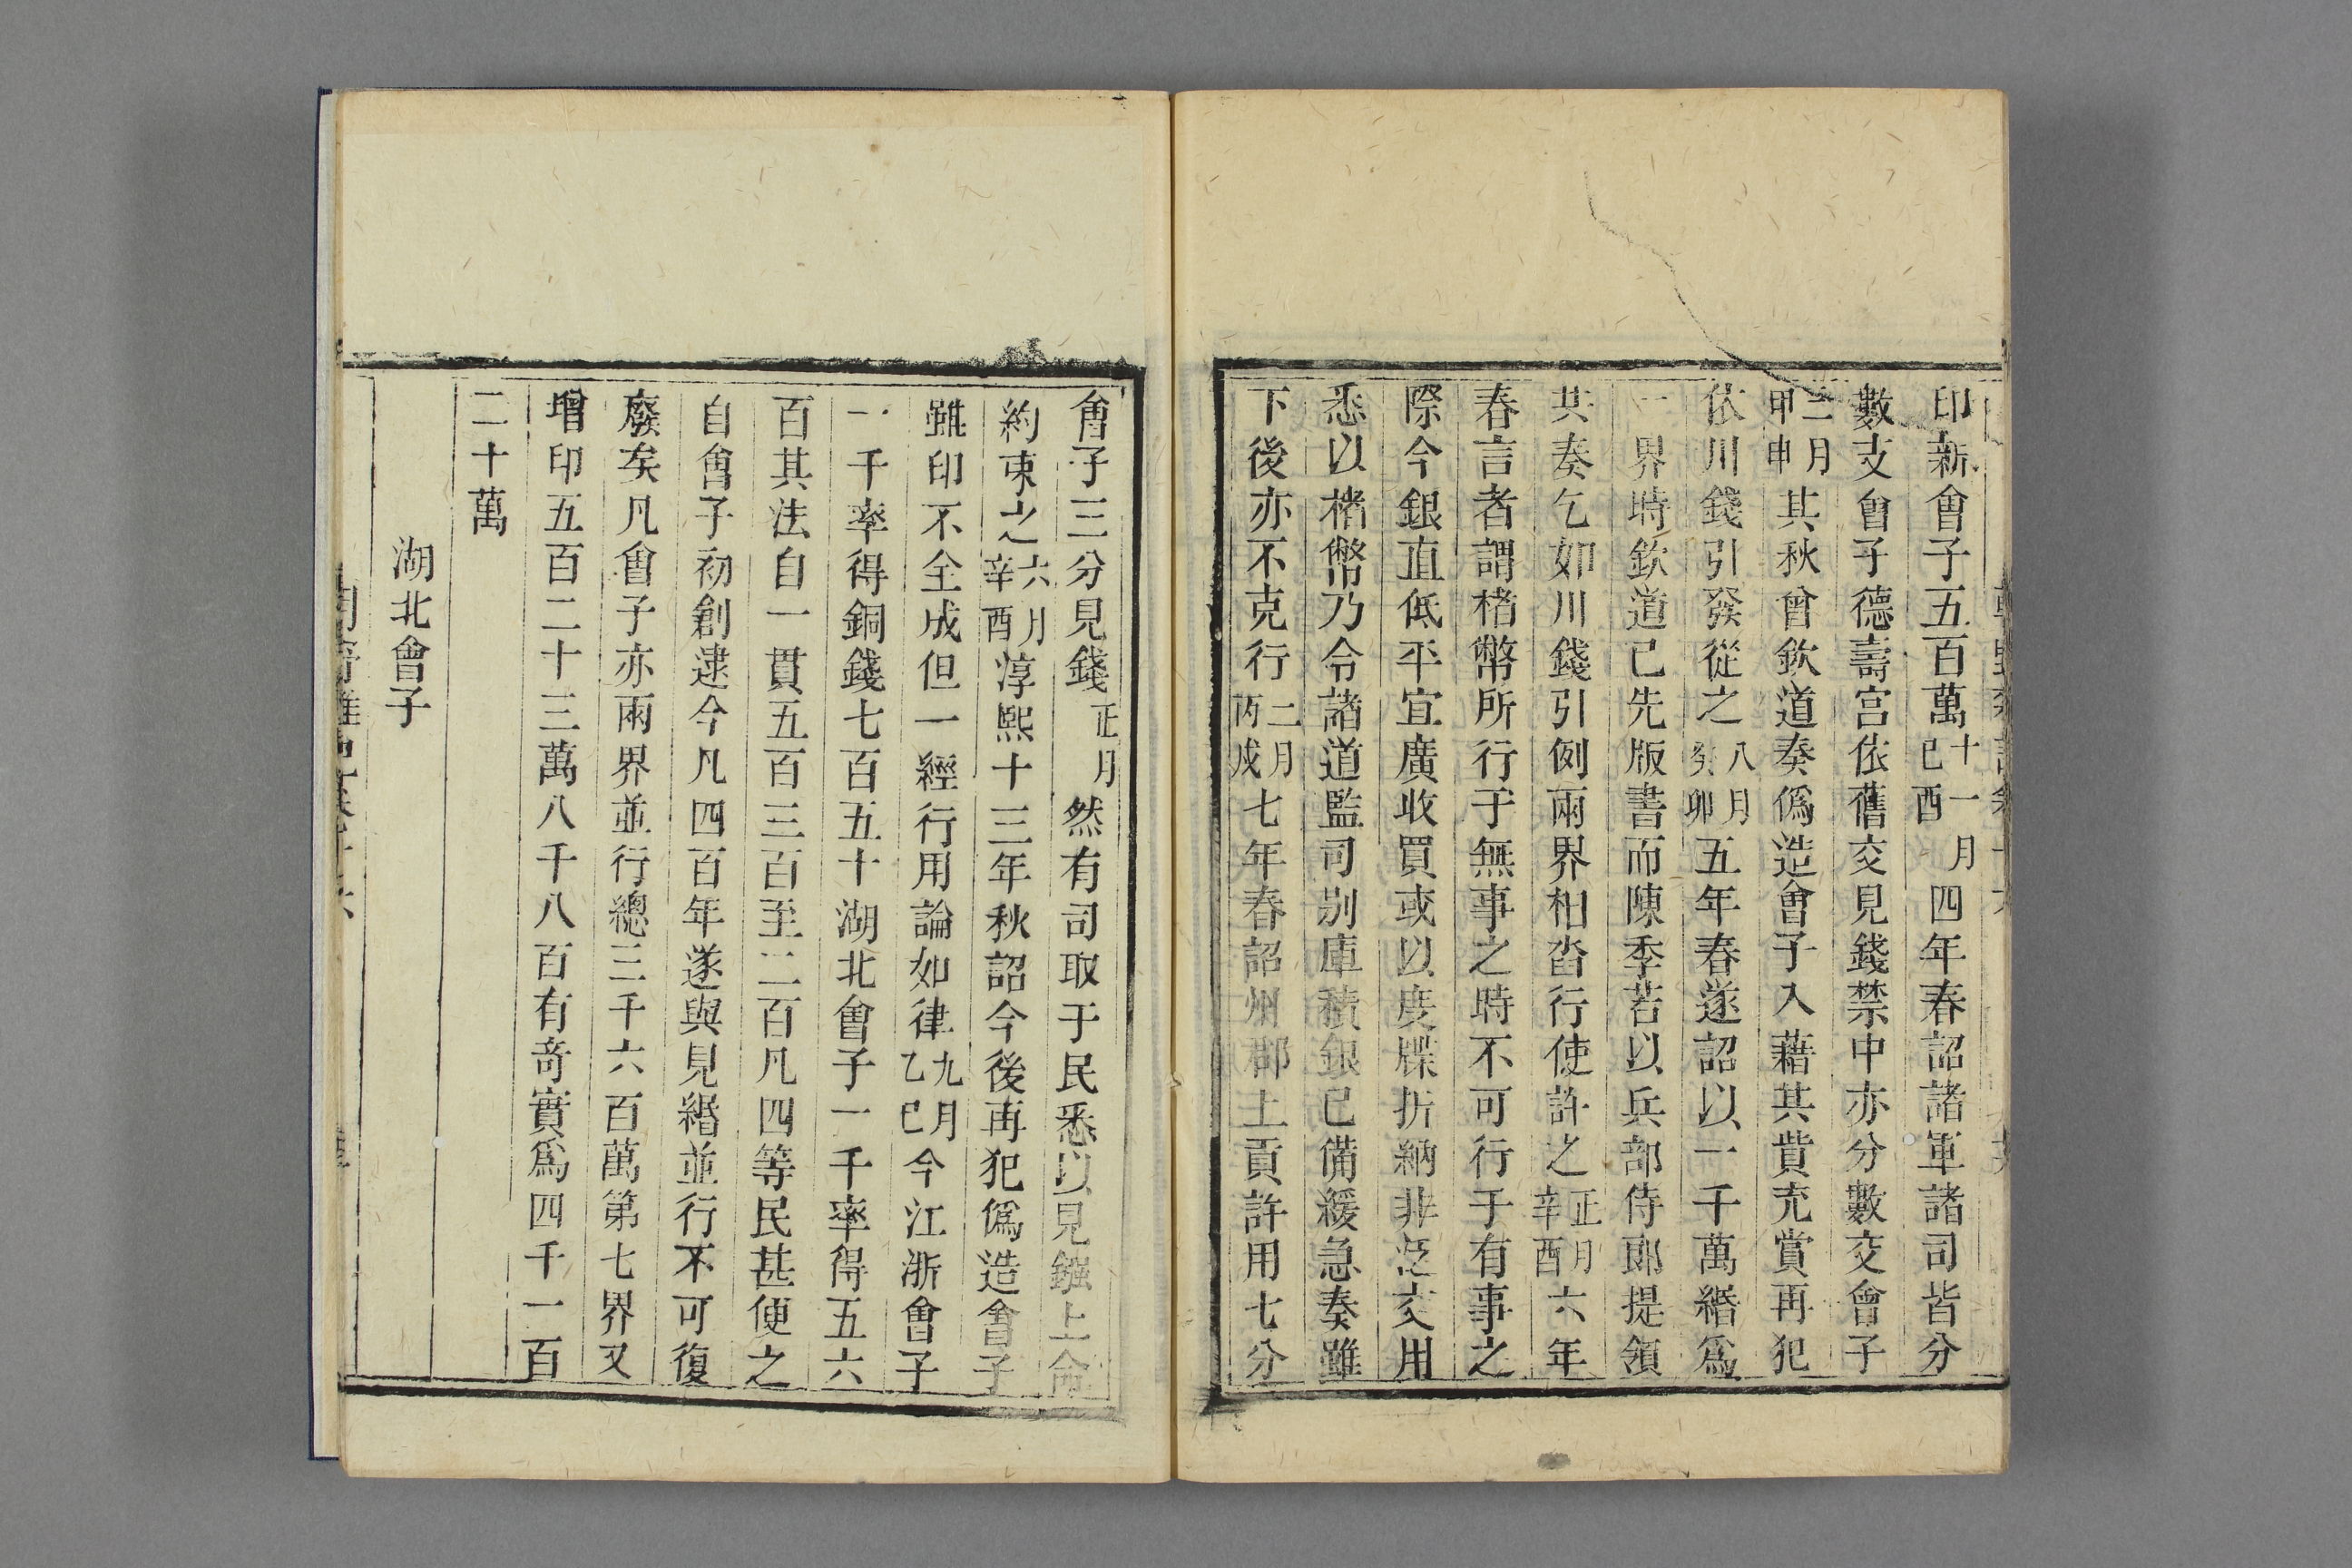 印新會子五百萬十一月己酉四年春詔諸軍諸司皆分
數支會子德壽宮依舊交見錢禁中亦分數交會子
二月甲申其秋曾欽道奏僞造會子入藉其貲充賞再犯
依川錢引發從之八月癸卯五年春遂詔以一千萬緡爲
一界時欽道已先版書而陳季若以兵部侍郎提領
共奏乞如川錢引例兩界相沓行使許之正月辛酉六年
春言者謂楮幣所行于無事之時不可行于有事之
際今銀直低平宜廣收買或以度牒折納非泛支用
悉以楮幣乃令諸道監司別庫積銀已備緩急奏雖
下後亦不克行二月丙戌七年春詔州郡上貢許用七分
會子三分見錢正月然有司取于民悉以見鏹上命
約束之六月辛酉淳熙十三年秋詔今後再犯僞造會子
雖印不全成但一經行用論如律九月乙巳今江浙會子
一千率得銅錢七百五十湖北會子一千率得五六
百其法自一貫五百三百至二百凡四等民甚便之
自會子初創逮今凡四百年遂與見緡並行不可復
廢矣凡會子亦兩界並行總三千六百萬第七界又
增印五百二十三萬八千八百有奇實爲四千一百
二十萬
湖北會子